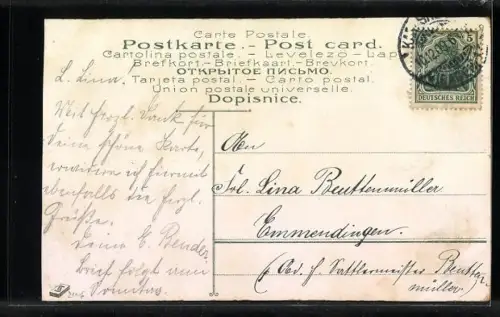 Carte Postale.
Postkarte. - Post card.
Cartolina postale. - Levelező-Lap
Brefkort.-Briefkaart.-Brevkort.
ОТКРЫТОЕ ПИСЬМО.
Tarjeta postal. - Carto postal.
Union postale universelle.
Dopisnice.
5
DEUTSCHES REICH
L. Lina.
Best herzl. Dank für
Deine schöne Karte,
erwidere ich hiermit
ebenfalls die herzl.
Grüße.
Deine E. Bender
Brief folgt am
Sonntag.
An
Frl. Lina Beuttenmüller
Emmendingen.
(Ad. H. Sattlermeister Beutten
müller